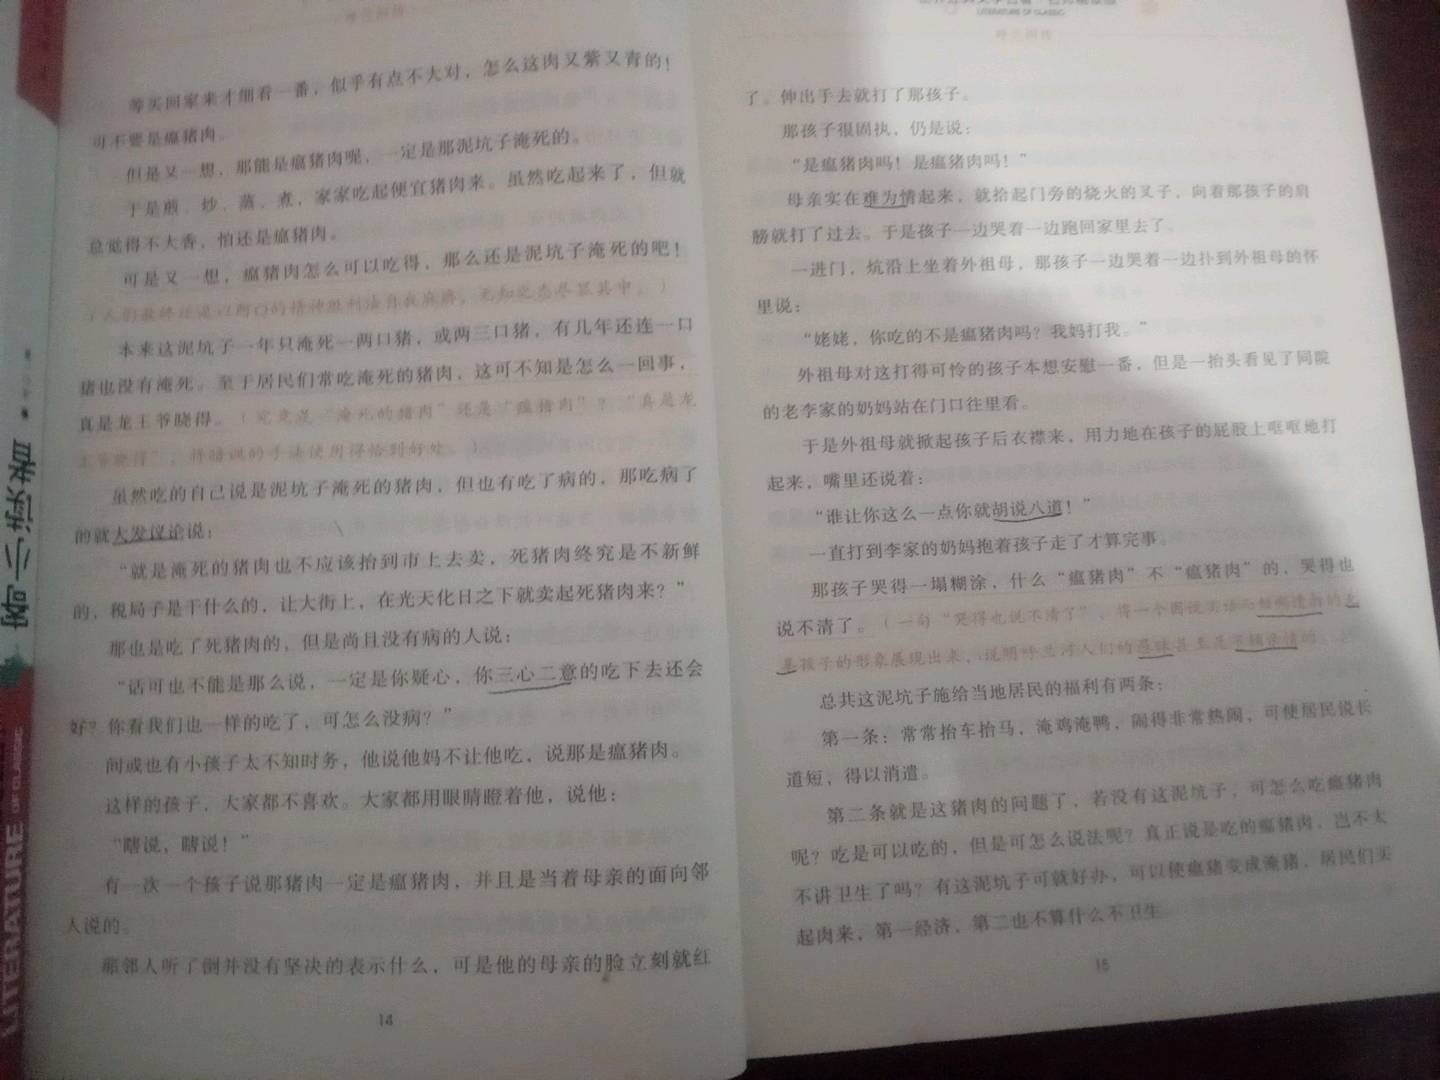 呼兰河传
等买回家来才细看一番，似乎有点不大对，怎么这肉又紫又青的！
可不要是瘟猪肉。
但是又一想，那能是瘟猪肉呢，一定是那泥坑子淹死的。
于是煎、炒、蒸、煮，家家吃起便宜猪肉来。虽然吃起来了，但就
总觉得不大香，怕还是瘟猪肉。
可是又一想，瘟猪肉怎么可以吃得，那么还是泥坑子淹死的吧！
（人们最终还是以阿Q的精神胜利法自我麻痹，无知之态尽显其中。）
本来这泥坑子一年只淹死一两口猪，或两三口猪，有几年还连一口
猪也没有淹死。至于居民们常吃淹死的猪肉，这可不知是怎么一回事，
真是龙王爷晓得。（究竟是“淹死的猪肉”还是“瘟猪肉”？“真是龙
王爷晓得”，将暗讽的手法使用得恰到好处。）
虽然吃的自己说是泥坑子淹死的猪肉，但也有吃了病的，那吃病了
的就大发议论说：
“就是淹死的猪肉也不应该抬到市上去卖，死猪肉终究是不新鲜
的，税局子是干什么的，让大街上，在光天化日之下就卖起死猪肉来？”
那也是吃了死猪肉的，但是尚且没有病的人说：
“话可也不能是那么说，一定是你疑心，你三心二意的吃下去还会
好？你看我们也一样的吃了，可怎么没病？”
间或也有小孩子太不知时务，他说他妈不让他吃，说那是瘟猪肉。
这样的孩子，大家都不喜欢。大家都用眼睛瞪着他，说他：
“瞎说，瞎说！”
有一次一个孩子说那猪肉一定是瘟猪肉，并且是当着母亲的面向邻
人说的。
那邻人听了倒并没有坚决的表示什么，可是他的母亲的脸立刻就红
14
LITERATURE OF CLASSIC
呼兰河传
了。伸出手去就打了那孩子。
那孩子很固执，仍是说：
“是瘟猪肉吗！是瘟猪肉吗！”
母亲实在难为情起来，就拾起门旁的烧火的叉子，向着那孩子的肩
膀就打了过去。于是孩子一边哭着一边跑回家里去了。
一进门，炕沿上坐着外祖母，那孩子一边哭着一边扑到外祖母的怀
里说：
“姥姥，你吃的不是瘟猪肉吗？我妈打我。”
外祖母对这打得可怜的孩子本想安慰一番，但是一抬头看见了同院
的老李家的奶妈站在门口往里看。
于是外祖母就掀起孩子后衣襟来，用力地在孩子的屁股上哐哐地打
起来，嘴里还说着：
“谁让你这么一点你就胡说八道！”
一直打到李家的奶妈抱着孩子走了才算完事。
那孩子哭得一塌糊涂，什么“瘟猪肉”不“瘟猪肉”的，哭得也
说不清了。（一句“哭得也说不清了”，将一个因说实话而
孩子的形象展现出来，说明呼兰河人们的愚昧甚至是
总共这泥坑子施给当地居民的福利有两条：
第一条：常常抬车抬马，淹鸡淹鸭，闹得非常热闹，可使居民说长
道短，得以消遣。
第二条就是这猪肉的问题了，若没有这泥坑子，可怎么吃瘟猪肉
呢？吃是可以吃的，但是可怎么说法呢？真正说是吃的瘟猪肉，岂不太
不讲卫生了吗？有这泥坑子可就好办，可以使瘟猪变成淹猪，居民们买
起肉来，第一经济，第二也不算什么不卫生
15
LITERATURE OF CLASSIC